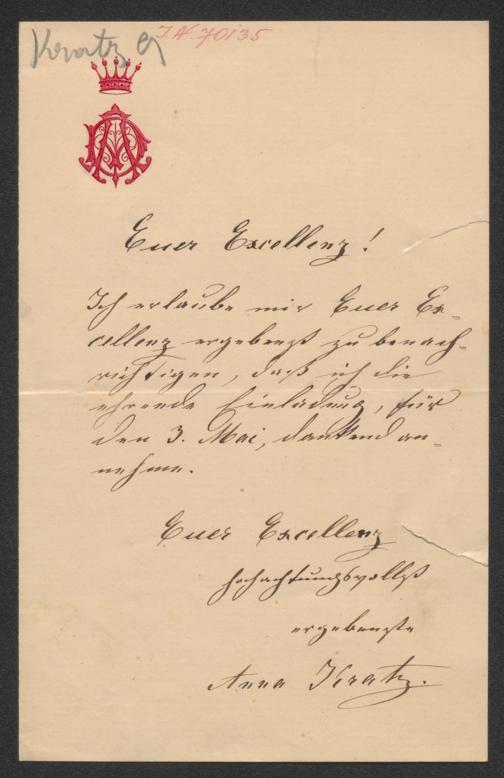 Kratz A
I.N. 70135
Euer Excellenz!
Ich erlaube mir Euer Ex-
cellenz ergebenst zu benach-
richtigen, daß ich die
ehrende Einladung, für
den 3. Mai, dankend an-
nehme.
Euer Excellenz
hochachtungsvollst
ergebenste
Anna Kratz.